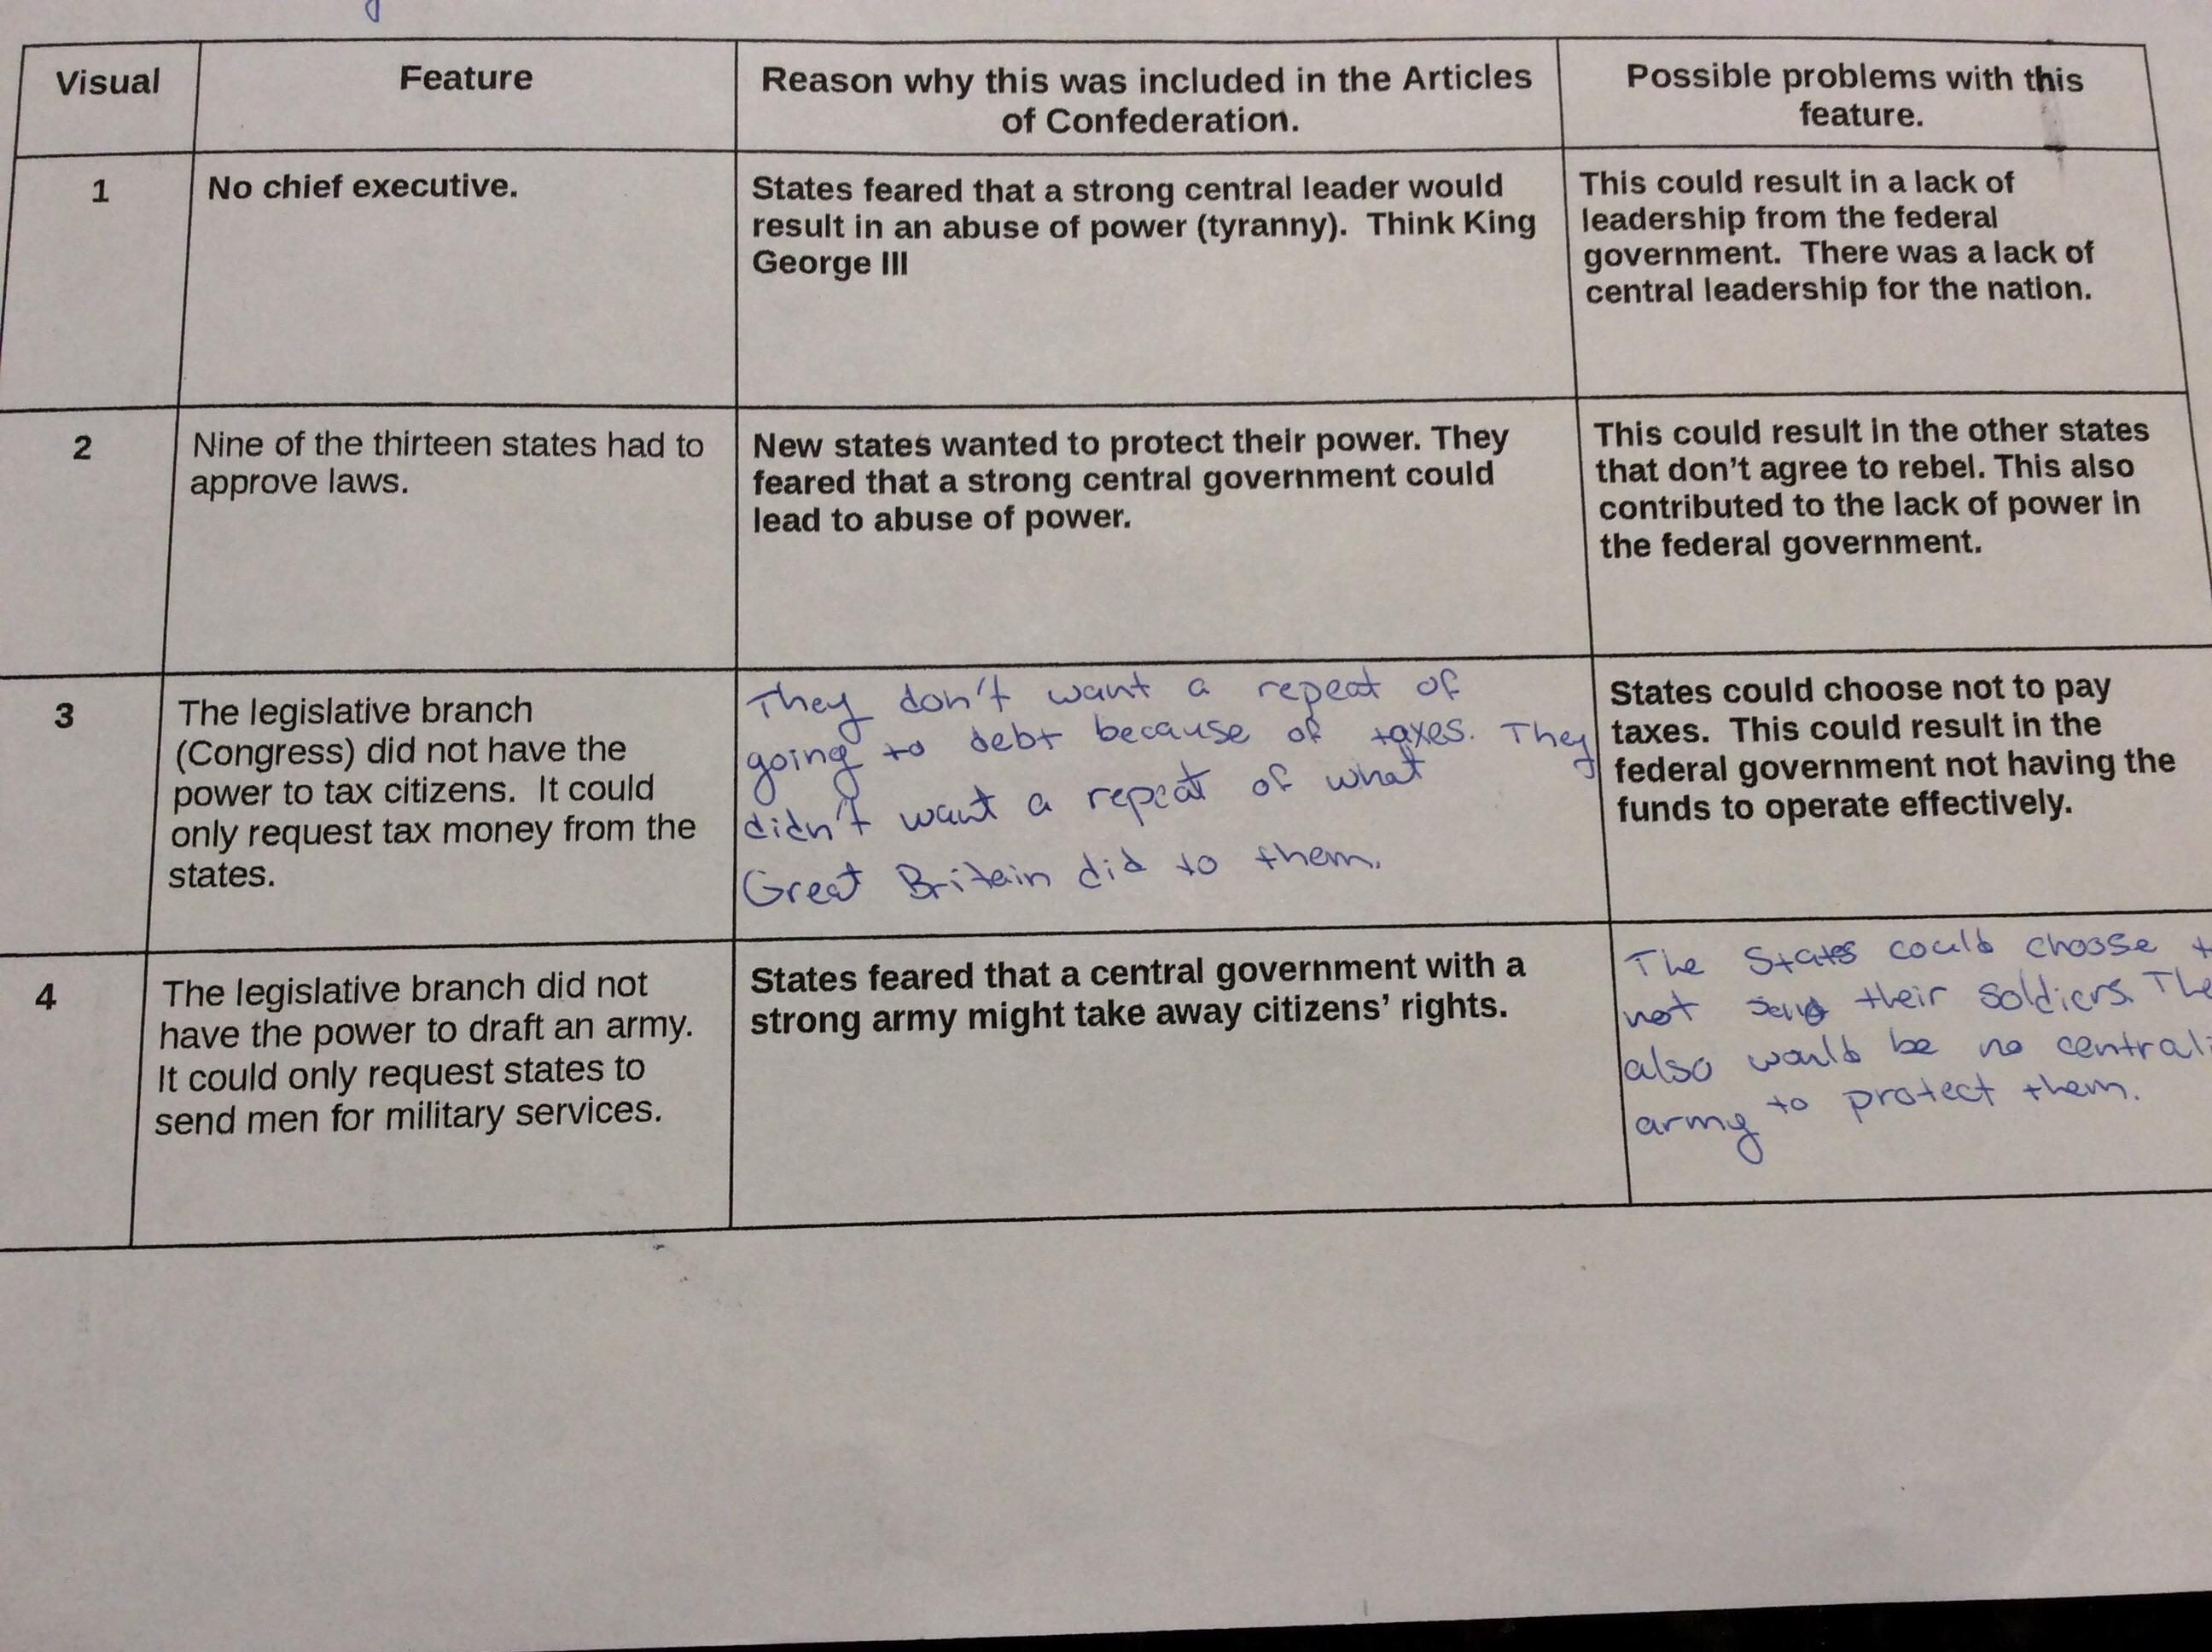 Visual
Feature
Reason why this was included in the Articles
of Confederation.
Possible problems with this
feature.
1
No chief executive.
States feared that a strong central leader would
result in an abuse of power (tyranny).  Think King
George III
This could result in a lack of
leadership from the federal
government.  There was a lack of
central leadership for the nation.
2
Nine of the thirteen states had to
approve laws.
New states wanted to protect their power. They
feared that a strong central government could
lead to abuse of power.
This could result in the other states
that don't agree to rebel. This also
contributed to the lack of power in
the federal government.
3
The legislative branch
(Congress) did not have the
power to tax citizens.  It could
only request tax money from the
states.
They don't want a repeat of
going to debt because of taxes. They
didn't want a repeat of what
Great Britain did to them.
States could choose not to pay
taxes.  This could result in the
federal government not having the
funds to operate effectively.
4
The legislative branch did not
have the power to draft an army.
It could only request states to
send men for military services.
States feared that a central government with a
strong army might take away citizens' rights.
The States could choose
not their soldiers.
also would be no
army to protect them.